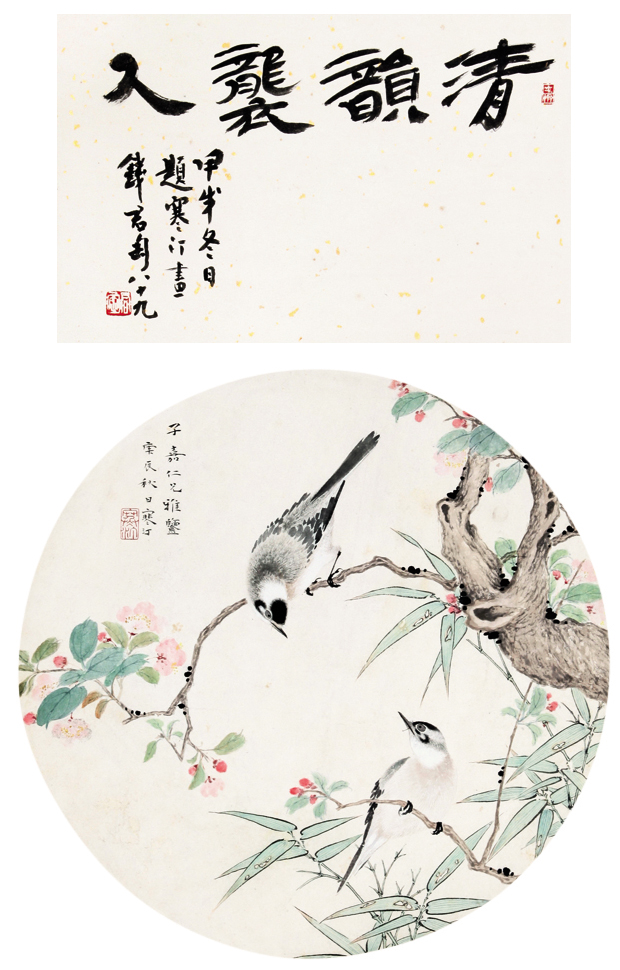 清韻襲人
甲戌冬日
題寒汀畫
錢君匋八十九
子嘉仁兄雅鑒
庚辰秋日寒汀